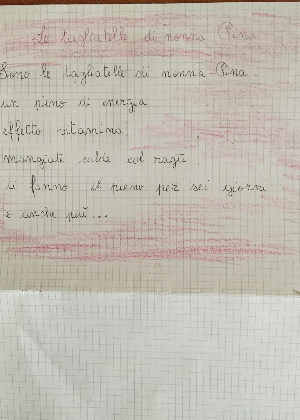 Le tagliatelle di nonna Pina
Sono le tagliatelle di nonna Pina
un pieno di energia
effetto vitamina
mangiate calde col ragù
ti fanno il pieno per sei giorni
e anche più...